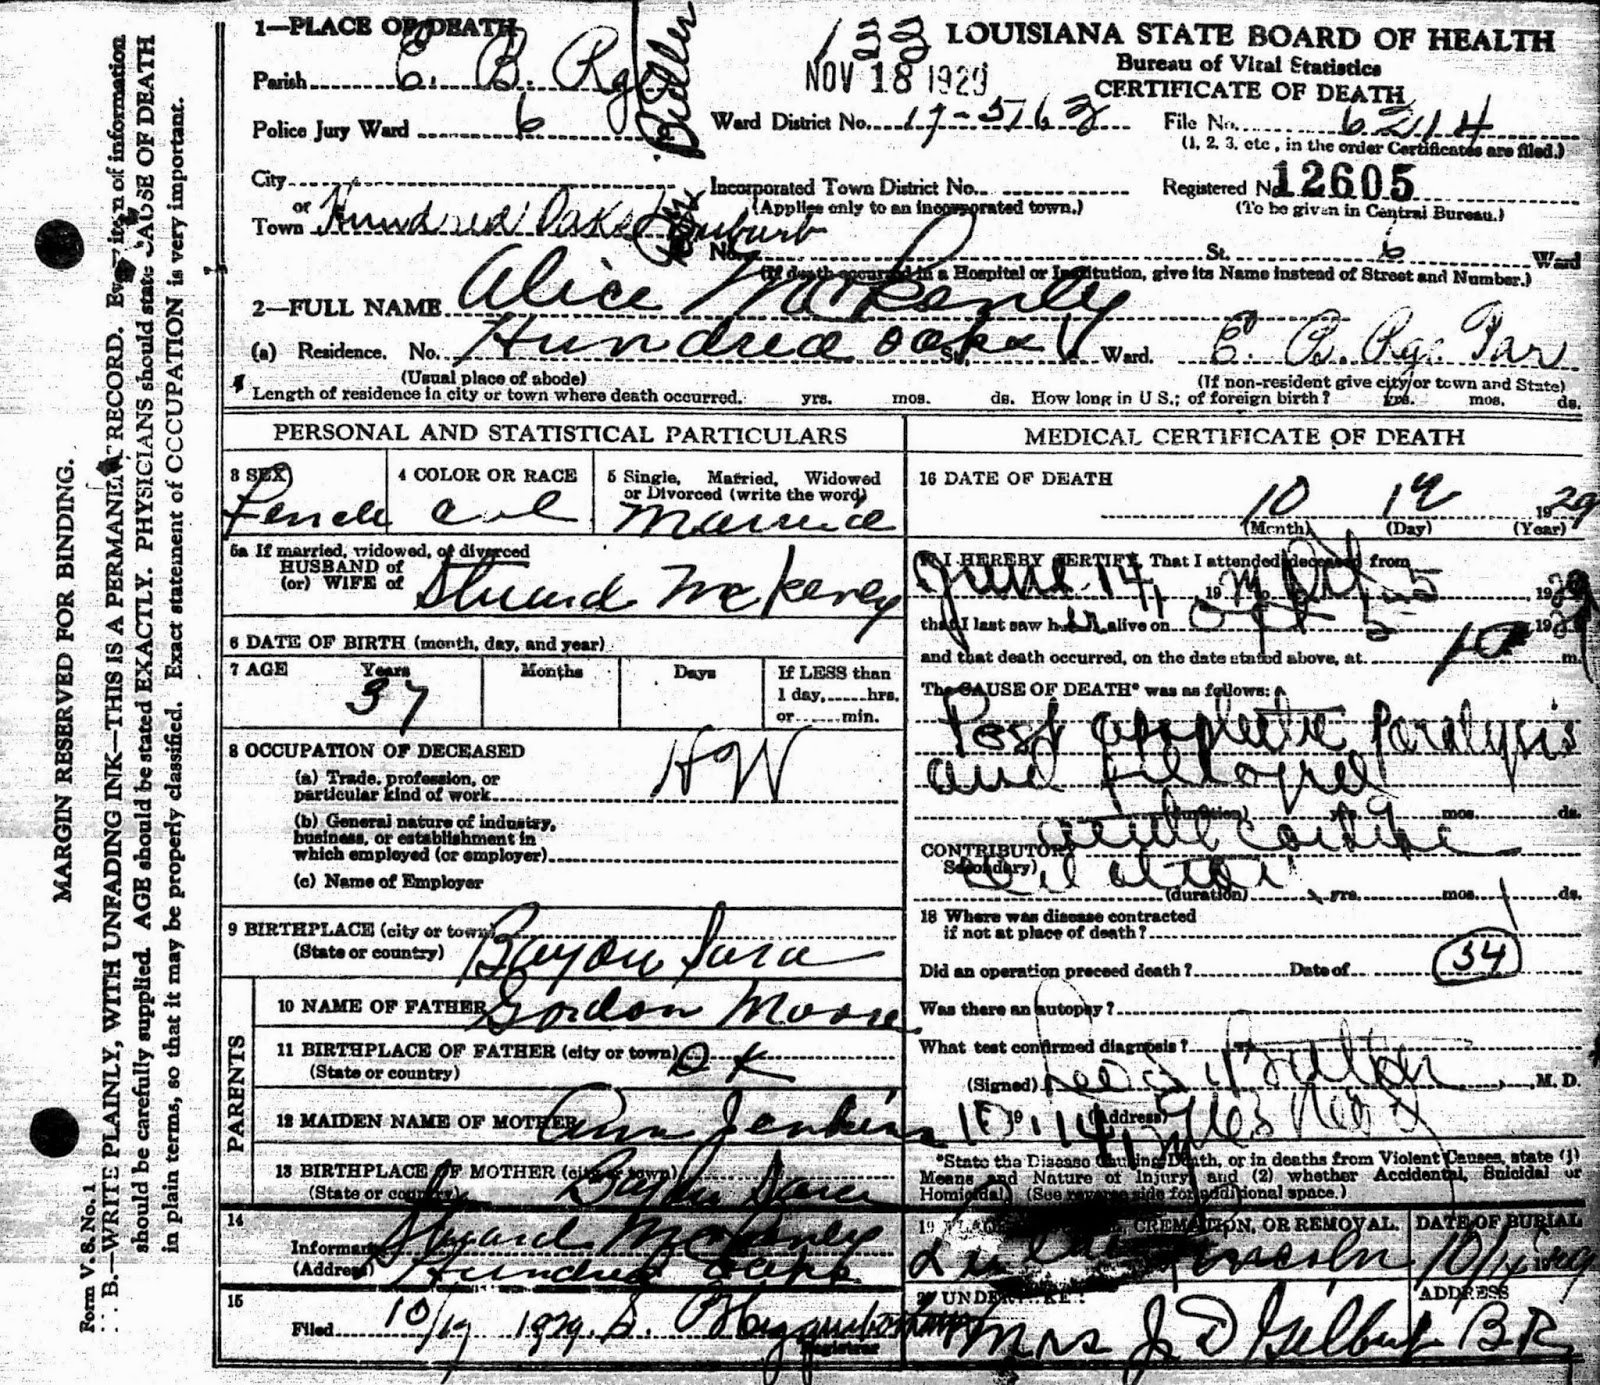 1—PLACE OF DEATH
133
NOV 18 1929
LOUISIANA STATE BOARD OF HEALTH
Bureau of Vital Statistics
CERTIFICATE OF DEATH
Parish E. B. Rge
Police Jury Ward 6
Ward District No. 17-5762
File No. 6214
(1, 2, 3, etc., in the order Certificates are filed.)
City
Incorporated Town District No.
Registered No. 12605
or
(Applies only to an incorporated town.)
(To be given in Central Bureau.)
Town Hundred Oaks Suburb
No. St. 6 Ward
(If death occurred in a Hospital or Institution, give its Name instead of Street and Number.)
2—FULL NAME Alice McKenly
(a) Residence. No. Hundred oaks St., Ward. E. B. Rge Par
(Usual place of abode)
(If non-resident give city or town and State)
Length of residence in city or town where death occurred. yrs. mos. ds. How long in U. S.; of foreign birth? yrs. mos. ds.
PERSONAL AND STATISTICAL PARTICULARS
3 SEX
Female
4 COLOR OR RACE
col
5 Single, Married, Widowed
or Divorced (write the word)
Married
5a If married, widowed, or divorced
HUSBAND of
(or) WIFE of McKenly
6 DATE OF BIRTH (month, day, and year)
7 AGE Years Months Days If LESS than
37
1 day,......hrs.
or......min.
8 OCCUPATION OF DECEASED
(a) Trade, profession, or
particular kind of work HW
(b) General nature of industry,
business, or establishment in
which employed (or employer)
(c) Name of Employer
9 BIRTHPLACE (city or town) Bayou Sara
(State or country)
PARENTS
10 NAME OF FATHER Gordon Moore
11 BIRTHPLACE OF FATHER (city or town) DK
(State or country)
12 MAIDEN NAME OF MOTHER Ann Jenkins
13 BIRTHPLACE OF MOTHER (city or town) Bayou Sara
(State or country)
14
Informant McKenly
(Address) Hundred oaks
15
Filed 10/19 1929
Registrar
MEDICAL CERTIFICATE OF DEATH
16 DATE OF DEATH
10 1929
(Month) (Day) (Year)
I HEREBY CERTIFY, That I attended deceased from
June 14, 19 5 1929
that I last saw her alive on 5 19
and that death occurred, on the date stated above, at m.
The CAUSE OF DEATH* was as follows:
Post apoplectic paralysis
and
(duration) yrs. mos. ds.
CONTRIBUTORY acute
(Secondary)
(duration) yrs. mos. 1 ds.
18 Where was disease contracted
if not at place of death?
Did an operation precede death? Date of 34
Was there an autopsy?
What test confirmed diagnosis?
(Signed) M. D.
19 (Address)
*State the Disease Causing Death, or in deaths from Violent Causes, state (1)
Means and Nature of Injury; and (2) whether Accidental, Suicidal or
Homicidal. (See reverse side for additional space.)
19 CREMATION, OR REMOVAL. DATE OF BURIAL
Lincoln
ADDRESS
Mrs J D Gilbert B R
MARGIN RESERVED FOR BINDING.
B.—WRITE PLAINLY, WITH UNFADING INK—THIS IS A PERMANENT RECORD. Every item of information
should be carefully supplied. AGE should be stated EXACTLY. PHYSICIANS should state CAUSE OF DEATH
in plain terms, so that it may be properly classified. Exact statement of OCCUPATION is very important.
Form V. S. No. 1